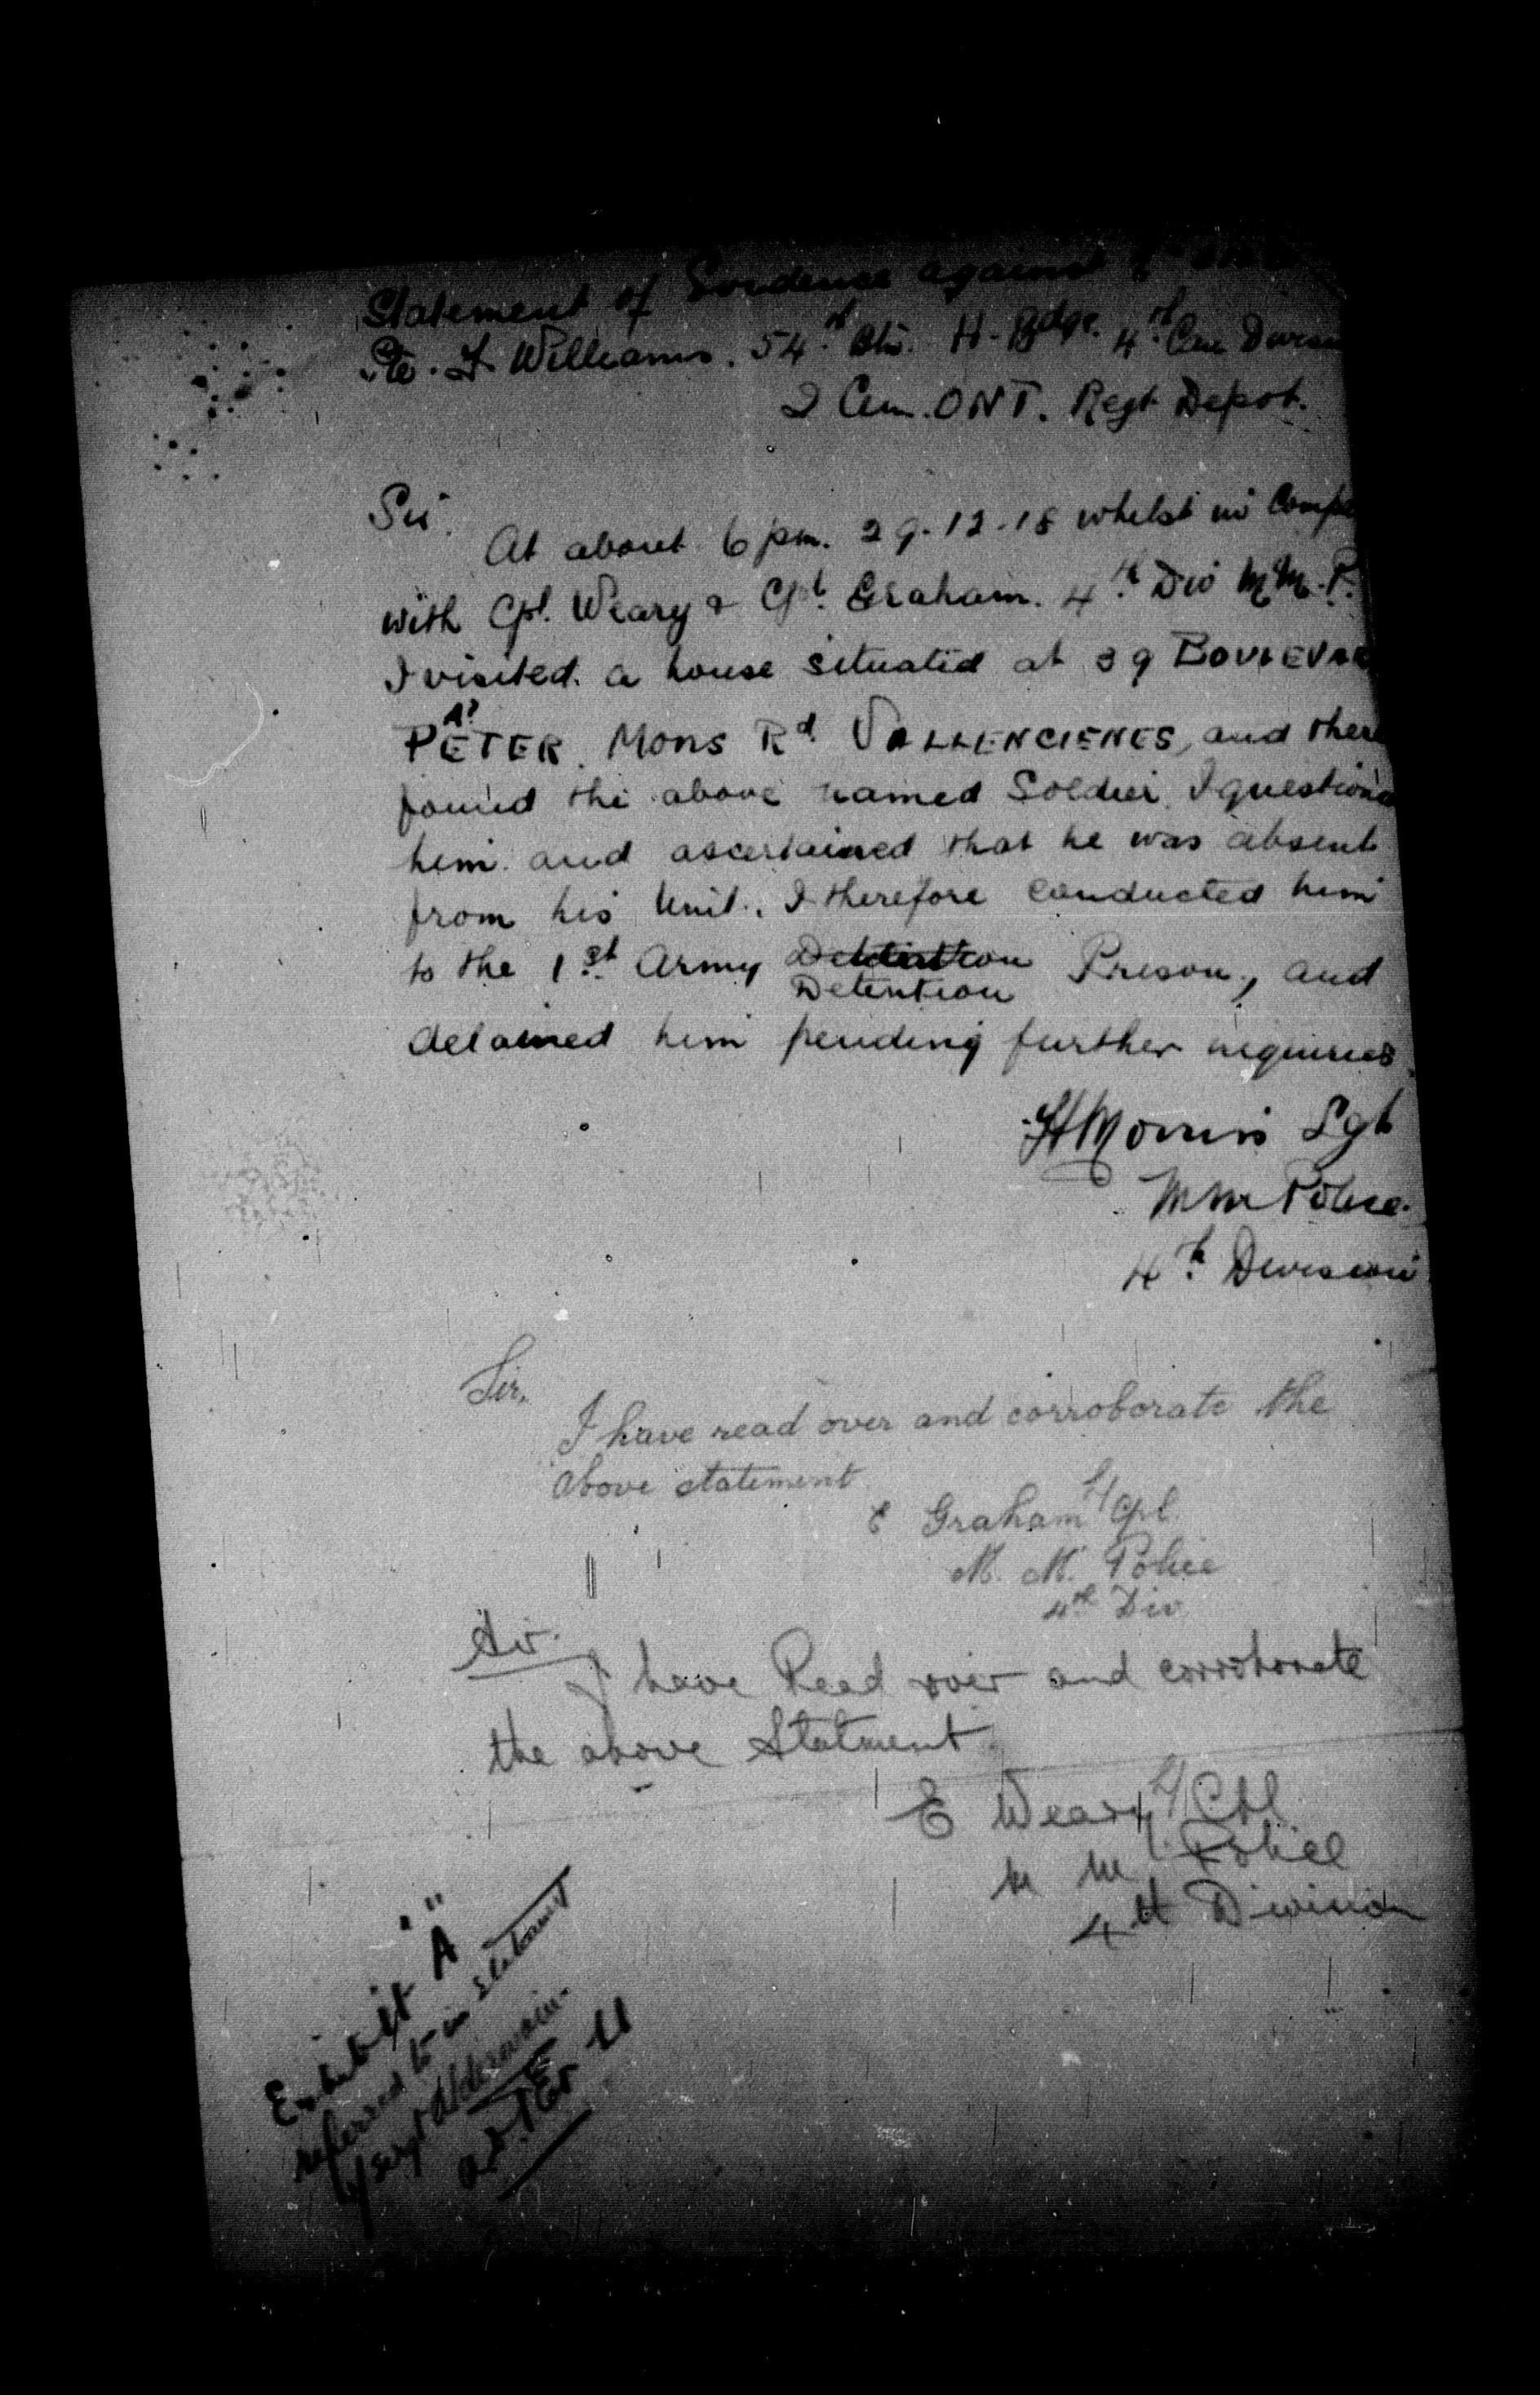 Statement of Evidence against
Pte. F. Williams. 54th Btn. H. Bdge. 4th Can Divisi
2 Cen. ONT. Regt Depot.
Sir.
At about 6 pm. 29.12.18 whilst in Comp
with Cpl. Weary & Cpl. Graham. 4th Div M.M.P.
I visited. a house situated at 39 BOULEVAR
PETER. MONS Rd VALLENCIENES, and there
found the above named Soldier. I question
him. and ascertained that he was absent
from his Unit. I therefore conducted him
to the 1st Army Detention Prison, and
detained him pending further inquiries.
H Morris Sgt
M M Police.
4th Division
Sir.
I have read over and corroborate the
above statement
E Graham L/Cpl.
M. M. Police
4th Div
Sir.
I have Read over and corroborate
the above Statment
E Weary L/Cpl
M M Police
4th Division
Exhibit "A"
referred to in statement
of Sergt Alderman.